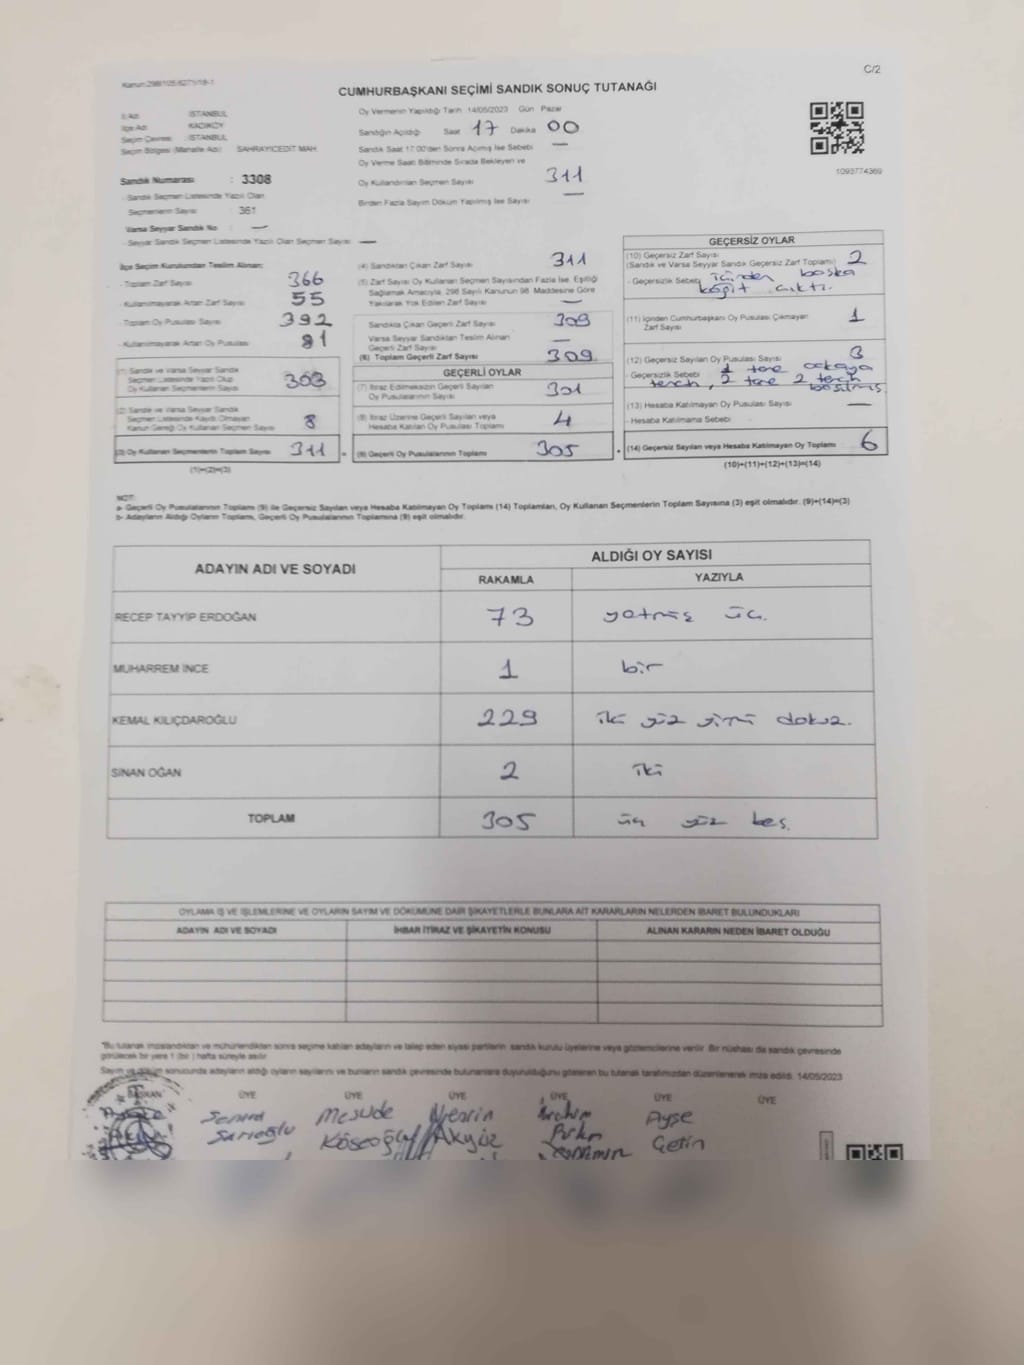 Kanun:298/105-6271/18-1
C/2
CUMHURBAŞKANI SEÇİMİ SANDIK SONUÇ TUTANAĞI
İl Adı İSTANBUL
İlçe Adı KADIKÖY
Seçim Çevresi İSTANBUL
Seçim Bölgesi (Mahalle Adı) SAHRAYICEDİT MAH.
Sandık Numarası : 3308
- Sandık Seçmen Listesinde Yazılı Olan
Seçmenlerin Sayısı : 361
Varsa Seyyar Sandık No : —
- Seyyar Sandık Seçmen Listesinde Yazılı Olan Seçmen Sayısı —
Oy Vermenin Yapıldığı Tarih 14/05/2023 Gün Pazar
Sandığın Açıldığı Saat 17 Dakika 00
Sandık Saat 17:00'den Sonra Açımış İse Sebebi —
Oy Verme Saati Bitiminde Sırada Bekleyen ve
Oy Kullandırılan Seçmen Sayısı 311
Birden Fazla Sayım Döküm Yapılmış İse Sayısı —
1093774369
İlçe Seçim Kurulundan Teslim Alınan;
- Toplam Zarf Sayısı 366
- Kullanılmayarak Artan Zarf Sayısı 55
- Toplam Oy Pusulası Sayısı 392
- Kullanılmayarak Artan Oy Pusulası 81
(1) Sandık ve Varsa Seyyar Sandık
Seçmen Listesinde Yazılı Olup
Oy Kullanan Seçmenlerin Sayısı 303
(2) Sandık ve Varsa Seyyar Sandık
Seçmen Listesinde Kayıtlı Olmayan
Kanun Gereği Oy Kullanan Seçmen Sayısı 8
(3) Oy Kullanan Seçmenlerin Toplam Sayısı 311
(1)+(2)=(3)
(4) Sandıktan Çıkan Zarf Sayısı 311
(5) Zarf Sayısı Oy Kullanan Seçmen Sayısından Fazla İse, Eşitliği
Sağlamak Amacıyla, 298 Sayılı Kanunun 98. Maddesine Göre
Yakılarak Yok Edilen Zarf Sayısı —
Sandıkta Çıkan Geçerli Zarf Sayısı 309
Varsa Seyyar Sandıktan Teslim Alınan
Geçerli Zarf Sayısı —
(6) Toplam Geçerli Zarf Sayısı 309
GEÇERLİ OYLAR
(7) İtiraz Edilmeksizin Geçerli Sayılan
Oy Pusulasının Sayısı 301
(8) İtiraz Üzerine Geçerli Sayılan veya
Hesaba Katılan Oy Pusulası Toplamı 4
(9) Geçerli Oy Pusulalarının Toplamı 305
GEÇERSİZ OYLAR
(10) Geçersiz Zarf Sayısı 2
(Sandık ve Varsa Seyyar Sandık Geçersiz Zarf Toplamı)
- Geçersizlik Sebebi içinden başka
kağıt çıktı.
(11) İçinden Cumhurbaşkanı Oy Pusulası Çıkmayan 1
Zarf Sayısı
(12) Geçersiz Sayılan Oy Pusulası Sayısı 3
- Geçersizlik Sebebi 1 tane arkaya
tercih, 2 tane 2 tercih
basılmış
(13) Hesaba Katılmayan Oy Pusulası Sayısı —
- Hesaba Katılmama Sebebi
(14) Geçersiz Sayılan veya Hesaba Katılmayan Oy Toplamı 6
(10)+(11)+(12)+(13)=(14)
NOT:
a- Geçerli Oy Pusulalarının Toplamı (9) ile Geçersiz Sayılan veya Hesaba Katılmayan Oy Toplamı (14) Toplamları, Oy Kullanan Seçmenlerin Toplam Sayısına (3) eşit olmalıdır. (9)+(14)=(3)
b- Adayların Aldığı Oyların Toplamı, Geçerli Oy Pusulalarının Toplamına (9) eşit olmalıdır.
ADAYIN ADI VE SOYADI ALDIĞI OY SAYISI
RAKAMLA YAZIYLA
RECEP TAYYİP ERDOĞAN 73 yetmiş üç.
MUHARREM İNCE 1 bir
KEMAL KILIÇDAROĞLU 229 iki yüz yirmi dokuz.
SİNAN OĞAN 2 iki
TOPLAM 305 üç yüz beş.
OYLAMA İŞ VE İŞLEMLERİNE VE OYLARIN SAYIM VE DÖKÜMÜNE DAİR ŞİKAYETLERLE BUNLARA AİT KARARLARIN NELERDEN İBARET BULUNDUKLARI
ADAYIN ADI VE SOYADI İHBAR İTİRAZ VE ŞİKAYETİN KONUSU ALINAN KARARIN NEDEN İBARET OLDUĞU
*Bu tutanak imzalandıktan ve mühürlendikten sonra seçime katılan adayların ve talep eden siyasi partilerin sandık kurulu üyelerine veya gözlemcilerine verilir. Bir nüshası da sandık çevresinde
görülecek bir yere 1 (bir) hafta süreyle asılır.
Sayım ve döküm sonucunda adayların aldığı oyların sayılarını ve bunların sandık çevresinde bulunanlara duyurulduğunu gösteren bu tutanak tarafımızdan düzenlenerek imza edildi. 14/05/2023
BAŞKAN ÜYE ÜYE ÜYE ÜYE ÜYE ÜYE
Mesude Nesrin İbrahim Ayşe
Sarıoğlu Köseoğlu Akyüz Çetin